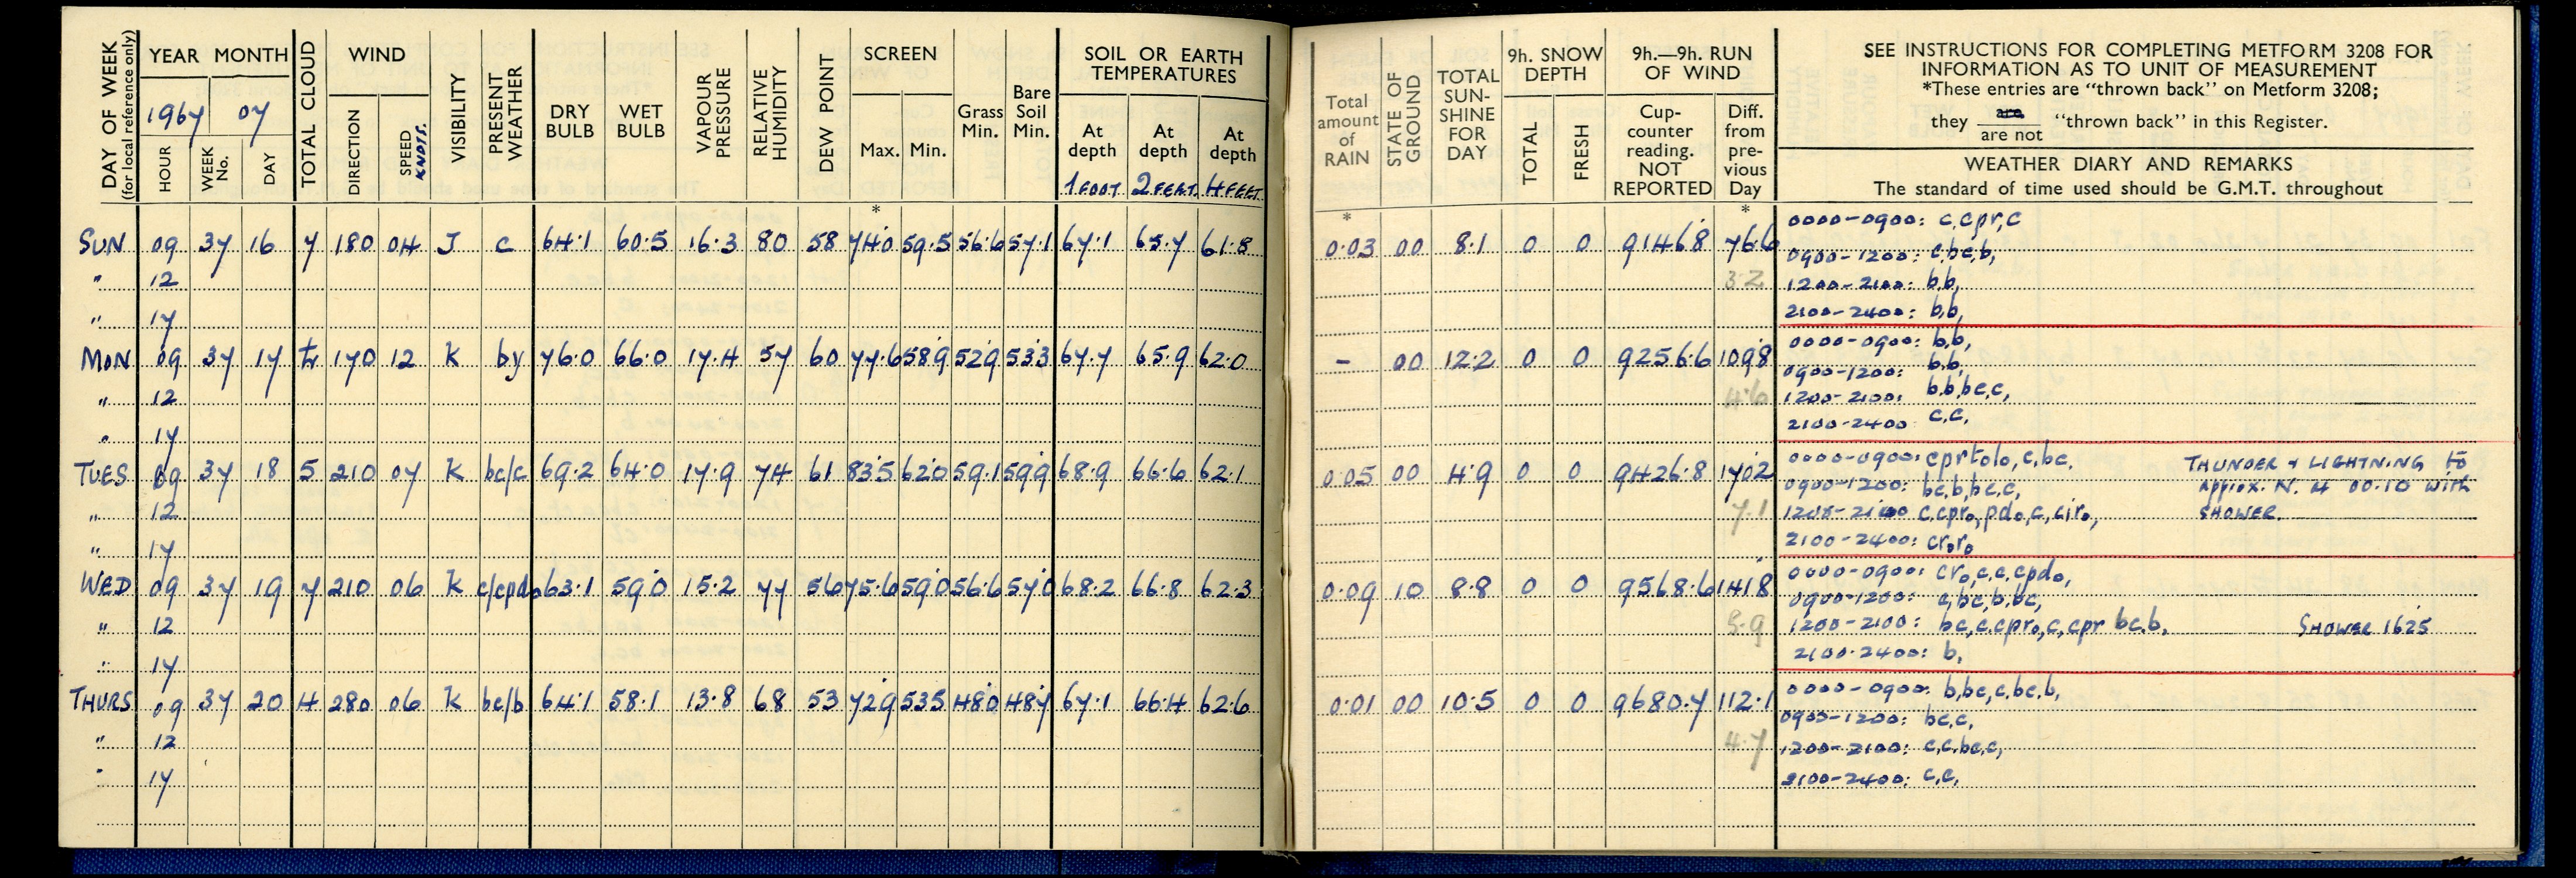 DAY OF WEEK (for local reference only) YEAR MONTH TOTAL CLOUD WIND VISIBILITY PRESENT WEATHER DRY BULB WET BULB VAPOUR PRESSURE RELATIVE HUMIDITY DEW POINT SCREEN Grass Min. Bare Soil Min. SOIL OR EARTH TEMPERATURES
1967 07
HOUR WEEK No. DAY DIRECTION SPEED KNOTS. Max. Min. At depth At depth At depth
1 FOOT 2 FEET 4 FEET
*
SUN 09 37 16 7 180 04 J c 64.1 60.5 16.3 80 58 74.0 59.5 56.6 57.1 67.1 65.7 61.8
" 12
" 17
MON 09 37 17 170 12 K by 76.0 66.0 17.4 57 60 77.6 58.9 52.9 53.3 67.7 65.9 62.0
" 12
" 17
TUES 09 37 18 5 210 07 K bc/c 69.2 64.0 17.9 74 61 83.5 62.0 59.1 59.9 68.9 66.6 62.1
" 12
" 17
WED 09 37 19 7 210 06 K c/cpdo 63.1 59.0 15.2 77 56 75.6 59.0 56.6 57.0 68.2 66.8 62.3
" 12
" 17
THURS 09 37 20 4 280 06 K bc/b 64.1 58.1 13.8 68 53 72.9 53.5 48.0 48.7 67.1 66.4 62.6
" 12
" 17
Total amount of RAIN STATE OF GROUND TOTAL SUN-SHINE FOR DAY 9h. SNOW DEPTH TOTAL FRESH 9h.—9h. RUN OF WIND Cup-counter reading. NOT REPORTED Diff. from pre-vious Day
SEE INSTRUCTIONS FOR COMPLETING METFORM 3208 FOR
INFORMATION AS TO UNIT OF MEASUREMENT
*These entries are "thrown back" on Metform 3208;
they are / are not "thrown back" in this Register.
WEATHER DIARY AND REMARKS
The standard of time used should be G.M.T. throughout
* *
0.03 00 8.1 0 0 9146.8 76.6
3.2
0000-0900: c,cpr,c
0900-1200: c,bc,b,
1200-2100: b,b,
2100-2400: b,b,
- 00 12.2 0 0 9256.6 109.8
4.6
0000-0900: b,b,
0900-1200: b,b,
1200-2100: b,b,bc,c,
2100-2400 c,c,
0.05 00 4.9 0 0 9426.8 170.2
7.1
0000-0900: cprtolo,c,bc. THUNDER + LIGHTNING to
0900-1200: bc,b,bc,c, Approx. N. at 00.10 with
1200-2100 c,cpro,pdo,c,ciro, SHOWER.
2100-2400: croro
0.09 10 8.8 0 0 9568.6 141.8
5.9
0000-0900: cro,c,c,cpdo,
0900-1200: c,bc,b,bc,
1200-2100: bc,c,cpro,c,cpr bc,b, SHOWER 1625
2100-2400: b,
0.01 00 10.5 0 0 9680.7 112.1
4.7
0000-0900: b,bc,c,bc,b,
0900-1200: bc,c,
1200-2100: c,c,bc,c,
2100-2400: c,c,